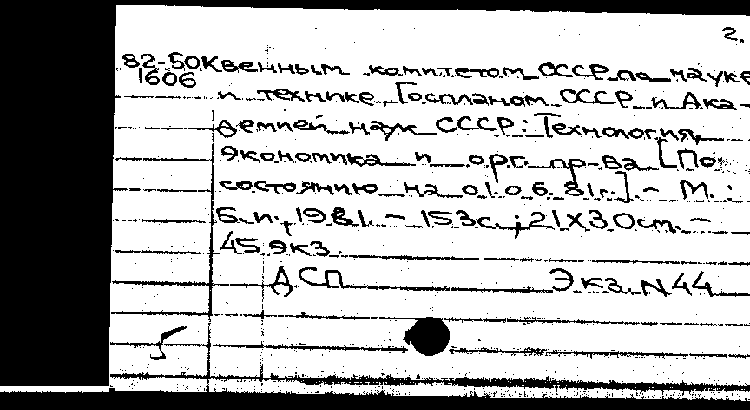 2.
82-50Квенным комитетом СССР по науке
1606 и технике, Госпланом СССР и Ака-
демией наук СССР: Технология,
экономика и орг. пр-ва [По
состоянию на 01.06.81г.]. - М.:
Б.и., 1981. - 153с.; 21Х30см. -
45 экз.
ДСП Экз. N44